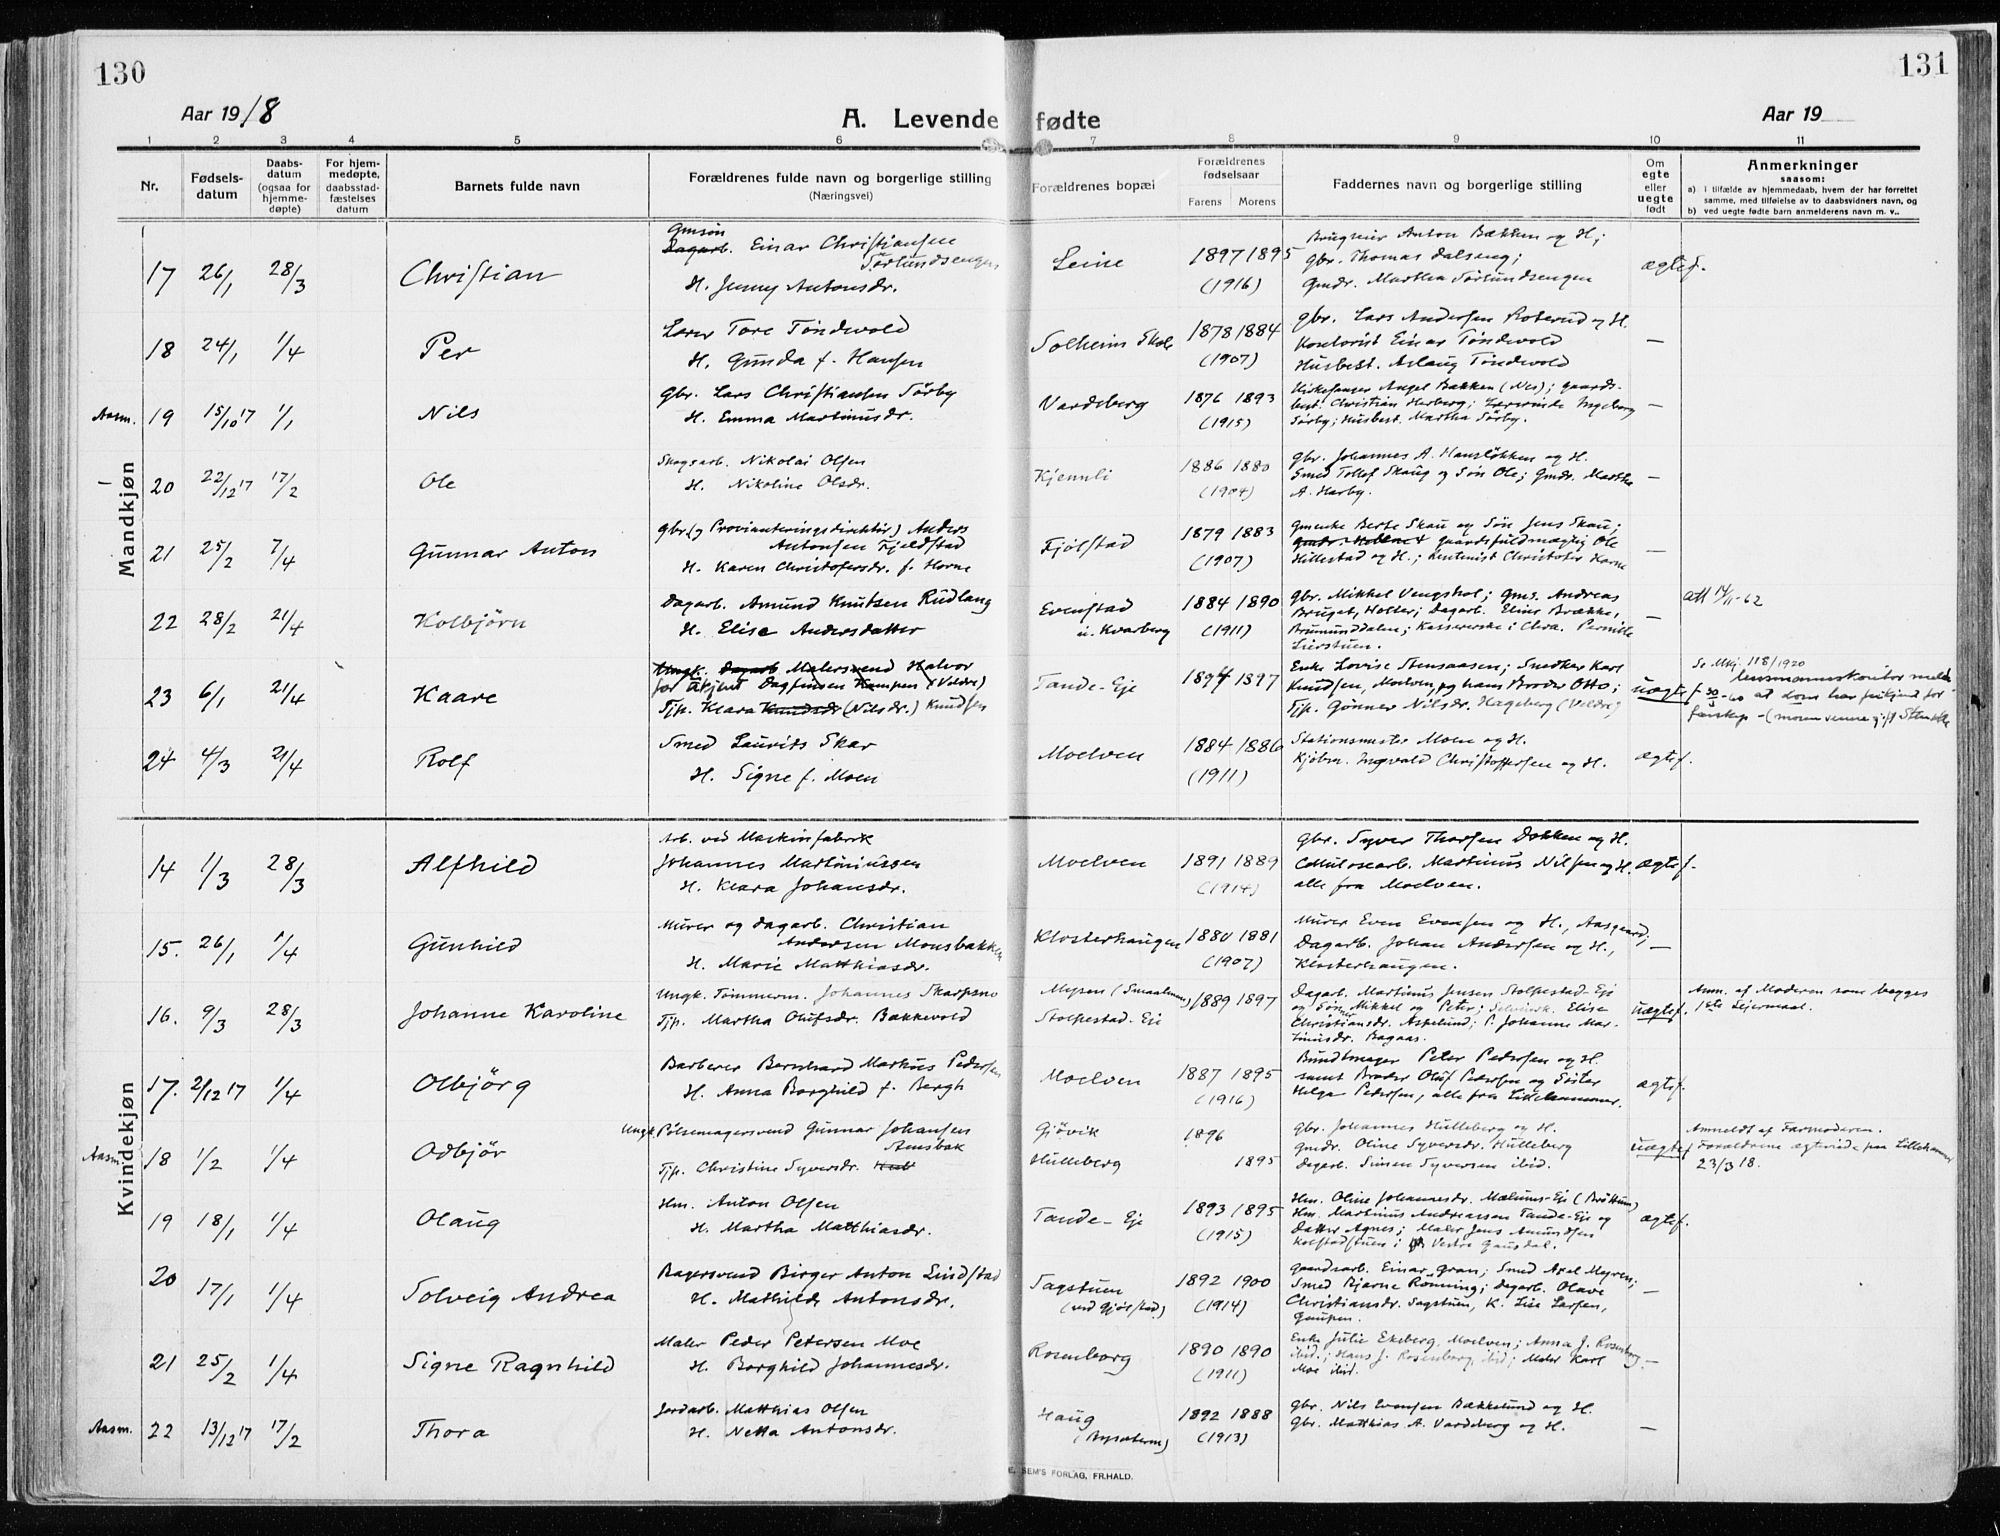 130
131
Aar 1918
A. Levende fødte
Aar 19
1 2 3 4 5 6 7 8 9 10 11
Nr.
Fødsels-
datum
Daabs-
datum
(ogsaa for
hjemme-
døpte)
For hjem-
medøpte,
daabsstad-
fæstelses
datum
Barnets fulde navn
Forældrenes fulde navn og borgerlige stilling
(Næringsvei)
Forældrenes bopæl
Forældrenes
fødselsaar
Farens Morens
Faddernes navn og borgerlige stilling
Om
egte
eller
uegte
født
Anmerkninger
saasom:
a) i tilfælde av hjemmedaab, hvem der har forrettet
samme, med tilføielse av to daabsvidners navn, og
b) ved uegte fødte barn anmelderens navn m. v..
Mandkjøn
17 26/1 28/3 Christian
Gmsøn
Dagarb. Einar Christiansen
Sørlundsengen
H. Jenny Antonsdr.
Leine 1897 1895
(1916)
Brugeier Anton Bækken og H;
gbr. Thomas Dalseng;
Gmdr. Martha Sørlundsengen
ægtef.
18 24/1 1/4 Per
Lærer Tore Töndevold
H. Gunda f. Hansen
Solheim Skole 1878 1884
(1907)
gbr. Lars Andersen Roterud og H.
Kontorist Einar Töndevold
Husbest. Aslaug Töndevold
—
Aasm. 19 15/10 17 1/1 Nils
Gbr. Lars Christiansen Sörby
H. Emma Martinusdr.
Vardeberg 1876 1893
(1915)
Kirkesanger Angel Bækken (Nes); gaards-
best. Christian Herberg; Lærerinde Ingeborg
Sörby; Husbest. Martha Sörby.
—
20 22/12 17 17/2 Ole
Skogsarb. Nikolai Olsen
H. Nikoline Olsdr.
Kjennli 1886 1880
(1904)
gbr. Johannes A. Hansløkken og H.
Smed Tollef Skaug og Søn Ole; Gmdr. Martha
A. Harby.
—
21 25/2 7/4 Gunnar Anton
gbr. (og Provianteringsdirektör) Anders
Antonsen Fjeldstad
H. Karen Christofersdr. f. Horne
Fjölstad 1879 1883
(1907)
Gmenke Berte Skau og Søn Jens Skau;
gaardsfuldmægtig Ole
Hillestad og H.; Lentenist Christofer Horne
—
22 28/2 21/4 Kolbjörn
Dagarb. Amund Knutsen Rudlang
H. Elise Andersdatter
Evenstad
u. Kvarberg
1884 1890
(1911)
gbr. Mikkel Vengshol; gms. Andreas
Bruget, Holter; Dagarb. Elius Brække,
Brumunddalen; Kassererske i Chra. Pernille
Lierstuen.
—
att 14/11-62
23 6/1 21/4 Kaare
Ungk. Dagarb Malersvend Halvor
Dagfinsen Kampen (Veldre)
Tjp. Klara Knudsdr (Nilsdr.) Knudsen
Tande-Eje 1894 1897
Enke Lovise Stensaasen; Smedker Karl
Knudsen, Moelven, og hans Broder Otto;
Tjp. Gönner Nilsdr. Hageberg (Veldre)
uægtef
Se Mkj. 118/1920
lensmannskontor
24 4/3 21/4 Rolf
Smed Laurits Skar
H. Signe f. Moen
Moelven 1884 1886
(1911)
Stationsmester Moen og H.
Kjöbm. Ingvald Christoffersen og H.
ægtef.
Kvindekjøn
14 1/3 28/3 Alfhild
Arb. ved Maskinfabrik
Johannes Martiniussen
H. Klara Johansdr.
Moelven 1891 1889
(1914)
gbr. Syver Thorsen Dokken og H.
Cellulosearb. Martinus Nilsen og H.
alle fra Moelven.
ægtef.
15. 26/1 1/4 Gunhild
Murer og Dagarb. Christian
Andersen Monsbakken
H. Marie Matthiasdr.
Klosterhaugen 1880 1881
(1907)
Murer Even Evensen og H., Aasgaard;
Dagarb. Johan Andersen og H.,
Klosterhaugen.
—
16. 9/3 28/3 Johanne Karoline
Ungk. Tömmerm. Johannes Skarpsno
Tjp. Martha Olufsdr. Bakkevold
Mysen (Smaalenene)
Stolpestad-Eje
1889 1897
Dagarb. Martinus Jensen Stolpestad-Eje
og Sönner Mikkel og Peter; Selveiersk. Elise
Christiansdr. Aspelund; P. Johanne Mar-
tinusdr. Bagaas.
uægtef.
Anm. af Moderen som begges
1ste Leiermaal.
17. 2/12 17 1/4 Olbjörg
Barberer Bernhard Markus Pedersen
H. Anna Borghild f. Bergh
Moelven 1887 1895
(1916)
Bundtmager Peter Pedersen og H.
samt Broder Oluf Pedersen og Söster
Helga Pedersen, alle fra Lillehammer.
ægtef.
Aasm. 18 1/2 1/4 Odbjör
Ungk. Pölsemagersvend Gunnar Johansen
Stensbak
Tjp. Christine Syversdr.
Gjövik
Hulleberg
1896
1895
gbr. Johannes Hulleberg og H.
Gmdr. Oline Syversdr. Hulleberg
Dagarb. Simen Syversen ibid.
uægtef
Anmeldt af Farmoderen.
Forældrene ægteviede paa Lillehammer
23/3 18.
19 18/1 1/4 Olaug
Hm. Anton Olsen
H. Martha Matthiasdr.
Tande-Eje 1893 1895
(1915)
Hm. Oline Johannesdr. Mælums-Eje (Bröttum)
Hm. Martinus Andreassen Tande-Eje og
Datter Agnes; Maler Jens Amundsen
Kolstadstuen i Vestre Gausdal.
ægtef.
20 17/1 1/4 Solveig Andrea
Bagersvend Birger Anton Lindstad
H. Mathilde Antonsdr.
Sagstuen
(ved Gjölstad)
1892 1900
(1914)
Gaardsarb. Einar Gran; Smed Axel Myren;
Smed Bjarne Rönning; Dagarb. Olave
Christiansdr. Sagstuen, K. Lise Larsen,
Gaupen.
—
21 25/2 1/4 Signe Ragnhild
Maler Peder Petersen Moe
H. Borghild Johannesdr.
Rosenborg 1890 1890
(1911)
Enke Julie Ekeberg, Moelven; Anna J. Rosenborg
ibid.; Hans J. Rosenborg, ibid; Maler Karl
Moe ibid.
—
Aasm. 22 13/12 17 17/2 Thora
Jordarb. Matthias Olsen
H. Netta Antonsdr.
Haug
1892 1888
(1913)
gbr. Nils Evensen Bækkelund og H.
gbr. Matthias A. Vardeberg og H.
—
SEM'S FORLAG, FR.HALD.